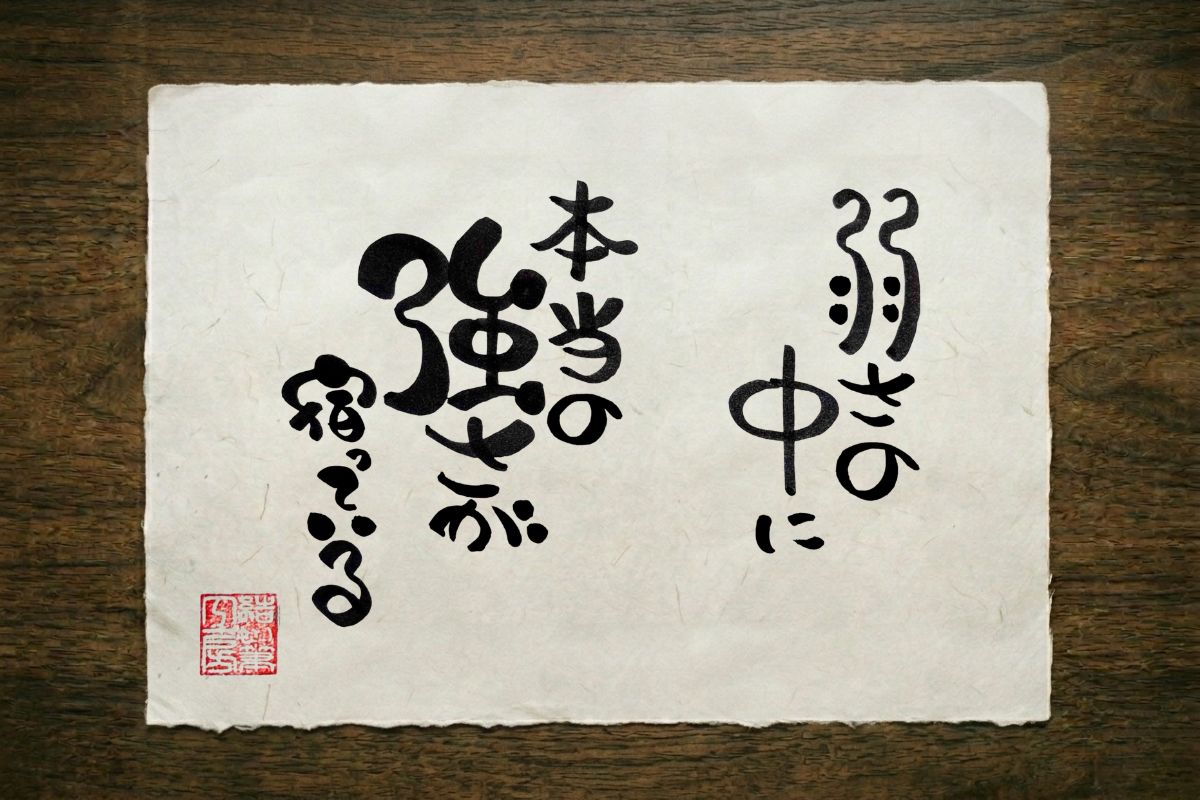 弱さの
中に
本当の
強さが
宿っている